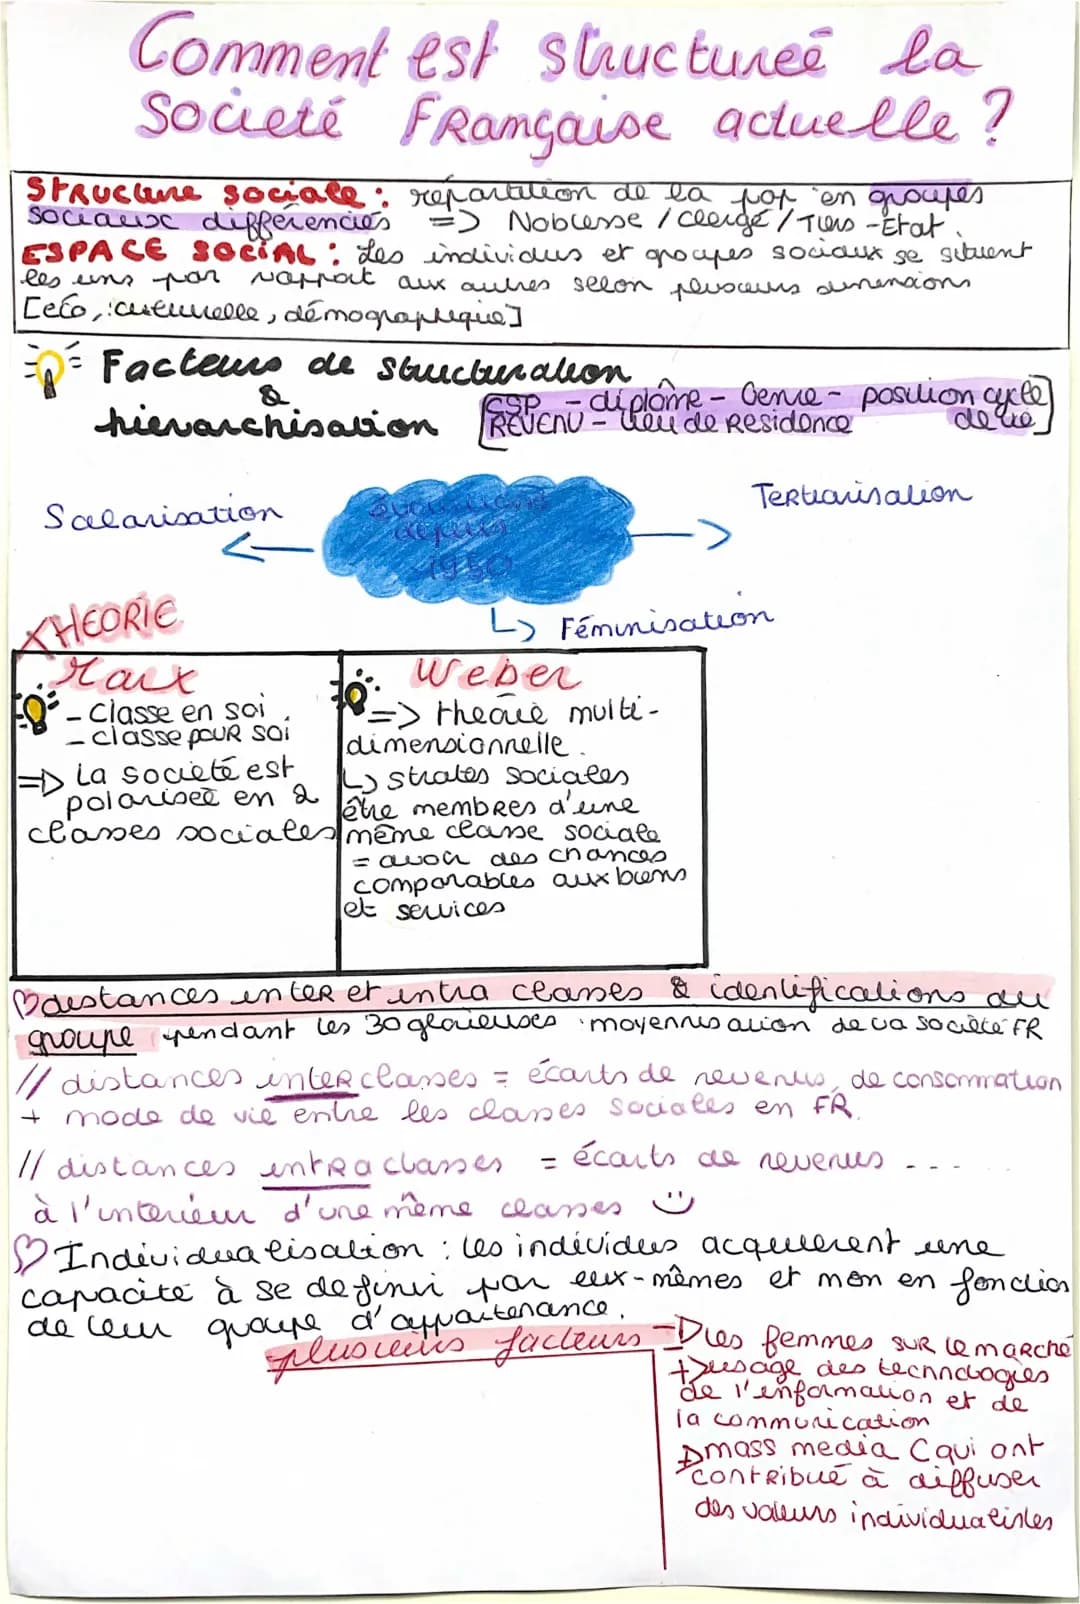 Comment est structureé la
Societé FRançaise actuelle ?
STRUCture sociale : répartition de la pop en groupes
sociaux différenciés => Noblesse / clergé / Tiers-Etat.
ESPACE SOCIAL : Les individus et groupes sociaux se situent
les uns par rapport aux autres selon plusieurs dimensions
[eco, culturelle, démographique]
Facteurs de structuration
&
hierarchisation
[CSP - diplôme - Genre - position cycle
REVENU - lieu de Residence de vie]
Salarisation
évolutions
depuis
1950
Tertiarisation
Féminisation
THEORIE
Marx
- classe en soi
- classe pour soi
=> La societé est
polariseé en 2
classes sociales
Weber
=> theorie multi-
dimensionnelle.
↳ strates sociales
être membres d'une
même classe sociale
= avoir des chances
comparables aux biens
et services
♡ distances inter et intra classes & identifications au
groupe pendant les 30 glorieuses : moyennisation de la societé FR
// distances inter classes = écarts de revenus, de consommation
+ mode de vie entre les classes sociales en FR.
// distances intra classes = écarts de revenus ...
à l'interieur d'une même classes
♡ Individualisation : les individus acquierent une
capacité à se definir par eux-mêmes et non en fonction
de leur groupe d'appartenance.
plusieurs facteurs
les femmes sur le marché
+ usage des technologies
de l'information et de
la communication
mass media (qui ont
contribué à diffuser
des valeurs individualistes